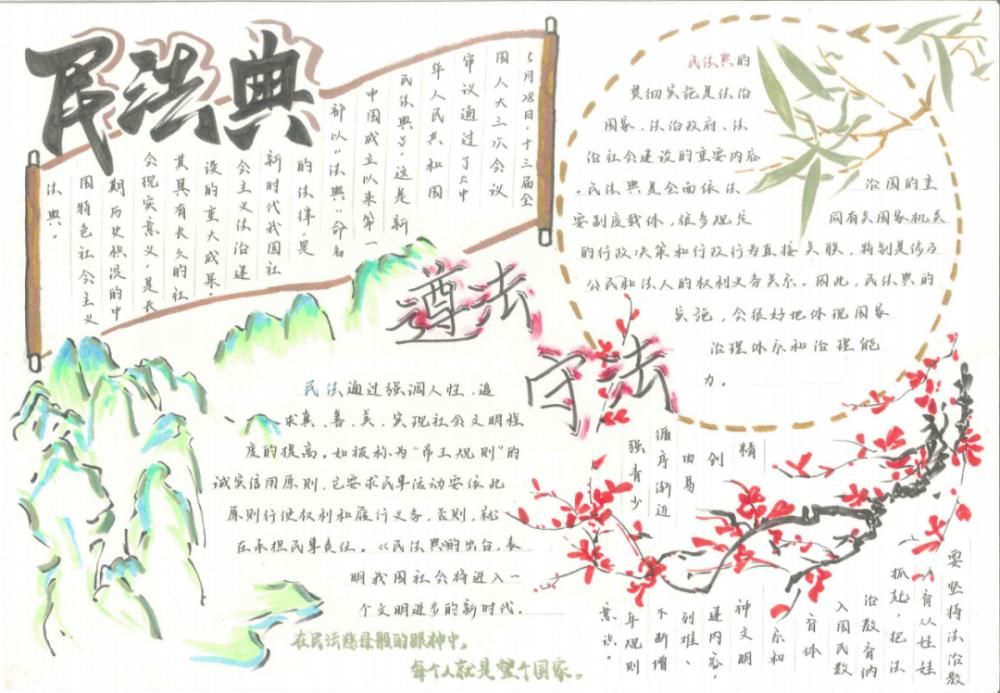 民法典
5月28日,十三届全
国人大三次会议
审议通过了《中
华人民共和国
民法典》,这是新
中国成立以来第一
部以“法典”命名
的法律,是
新时代我国社
会主义法治建
设的重大成果。
其具有长久的社
会现实意义,是长
期历史积淀的中
国特色社会主义
法典。
民法典的
贯彻实施是法治
国家、法治政府、法
治社会建设的重要内容
。民法典是全面依法 治国的主
要制度载体,很多规定 同有关国家机关
的行政决策和行政行为直接关联,特别是涉及
公民和法人的权利义务关系。因此,民法典的
实施,会很好地体现国家
治理体系和治理能
力。
遵法
守法
民法通过强调人性,追
求真、善、美,实现社会文明程
度的提高。如被称为“帝王规则”的
诚实信用原则,它要求民事活动要依此
原则行使权利和履行义务,否则,就
在承担民事责任。《民法典》的出台,表
明我国社会将进入一
个文明进步的新时代。
在民法慈母般的眼神中,
每个人就是整个国家。
要坚持法治教
育从娃娃
抓起,把法
治教育纳
入国民教
育体
系和
精 神文明
创 建内容,
由易 到难、
循序渐近 不断增
强青少 年规则
意识。